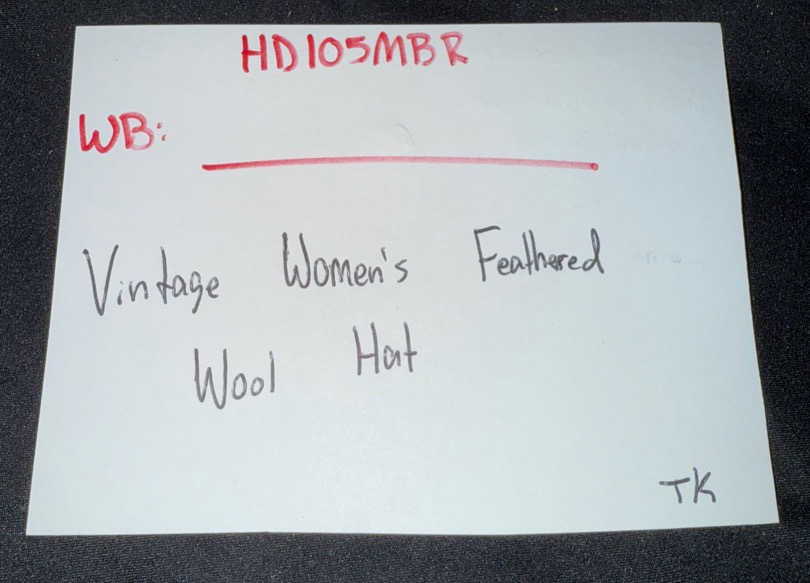 HD105MBR
WB:
Vintage Women's Feathered
Wool Hat
TK